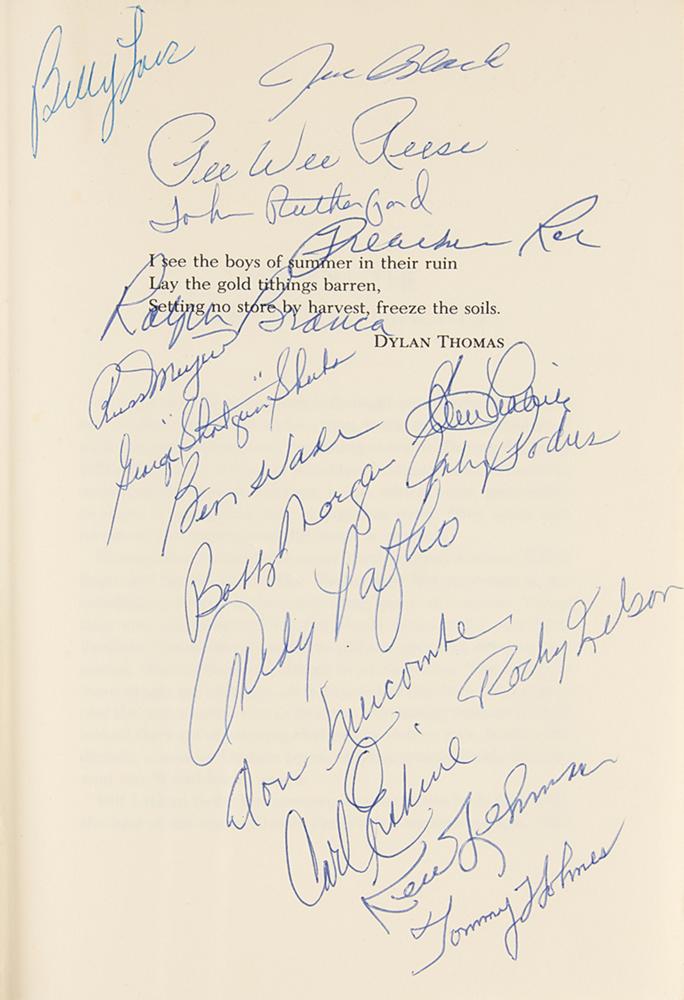 Billy Loes
Joe Black
Pee Wee Reese
John Rutherford
Preacher Roe
I see the boys of summer in their ruin
Lay the gold tithings barren,
Setting no store by harvest, freeze the soils.
DYLAN THOMAS
Ralph Branca
Russ Meyer
George "Shotgun" Shuba
Clem Labine
Ben Wade
Johnny Podres
Bobby Morgan
Andy Pafko
Rocky Nelson
Don Newcombe
Carl Erskine
Ken Lehman
Tommy Holmes